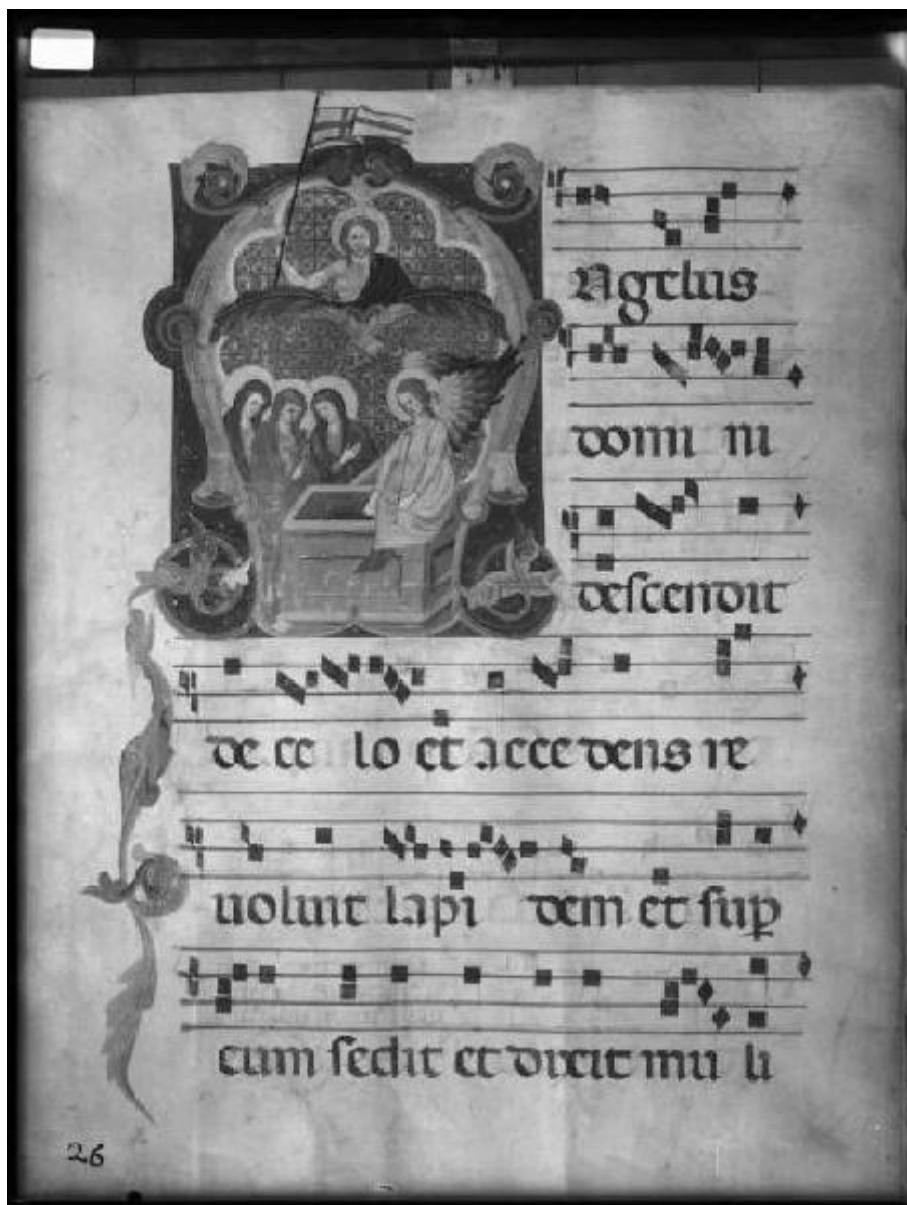 Angelus
domi ni
descendit
de ce lo et acce dens re
uoluit lapi dem et sup
eum sedit et dixit mu li
26